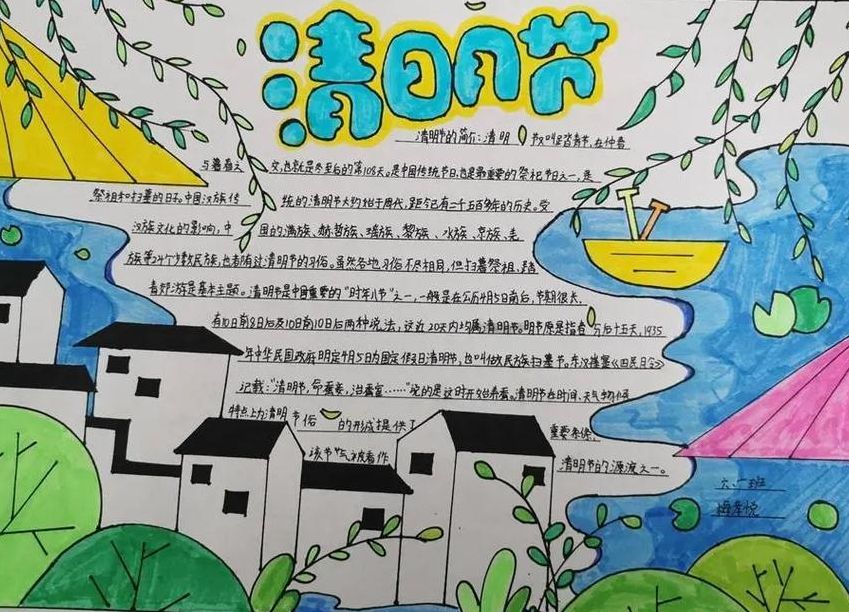 清明节
清明节的简介：清明节又叫踏青节，在仲春
与暮春之交，也就是冬至后的第108天。是中国传统节日，也是最重要的祭祀节日之一，是
祭祖和扫墓的日子。中国汉族传统的清明节大约始于周代，距今已有二千五百多年的历史。受
汉族文化的影响，中国的满族、赫哲族、瑶族、黎族、水族、京族、羌
族等24个少数民族，也都有过清明节的习俗。虽然各地习俗不尽相同，但扫墓祭祖、踏
青郊游是基本主题。清明节是中国重要的“时年八节”之一，一般是在公历4月5日前后，节期很长，
有10日前8日后及10日前10日后两种说法，这近20天内均属清明节。明节原是指春分后十五天，1935
年中华民国政府明定4月5日为国定假日清明节，也叫做民族扫墓节。东汉崔寔《四民月令》
记载：“清明节，命蚕妾，治蚕室……”说的是这时开始养蚕。清明节在时间、天气物候
特点上为清明节俗的形成提供了重要条件，
该节气被看作清明节的源流之一。
六、一班
梅
悦